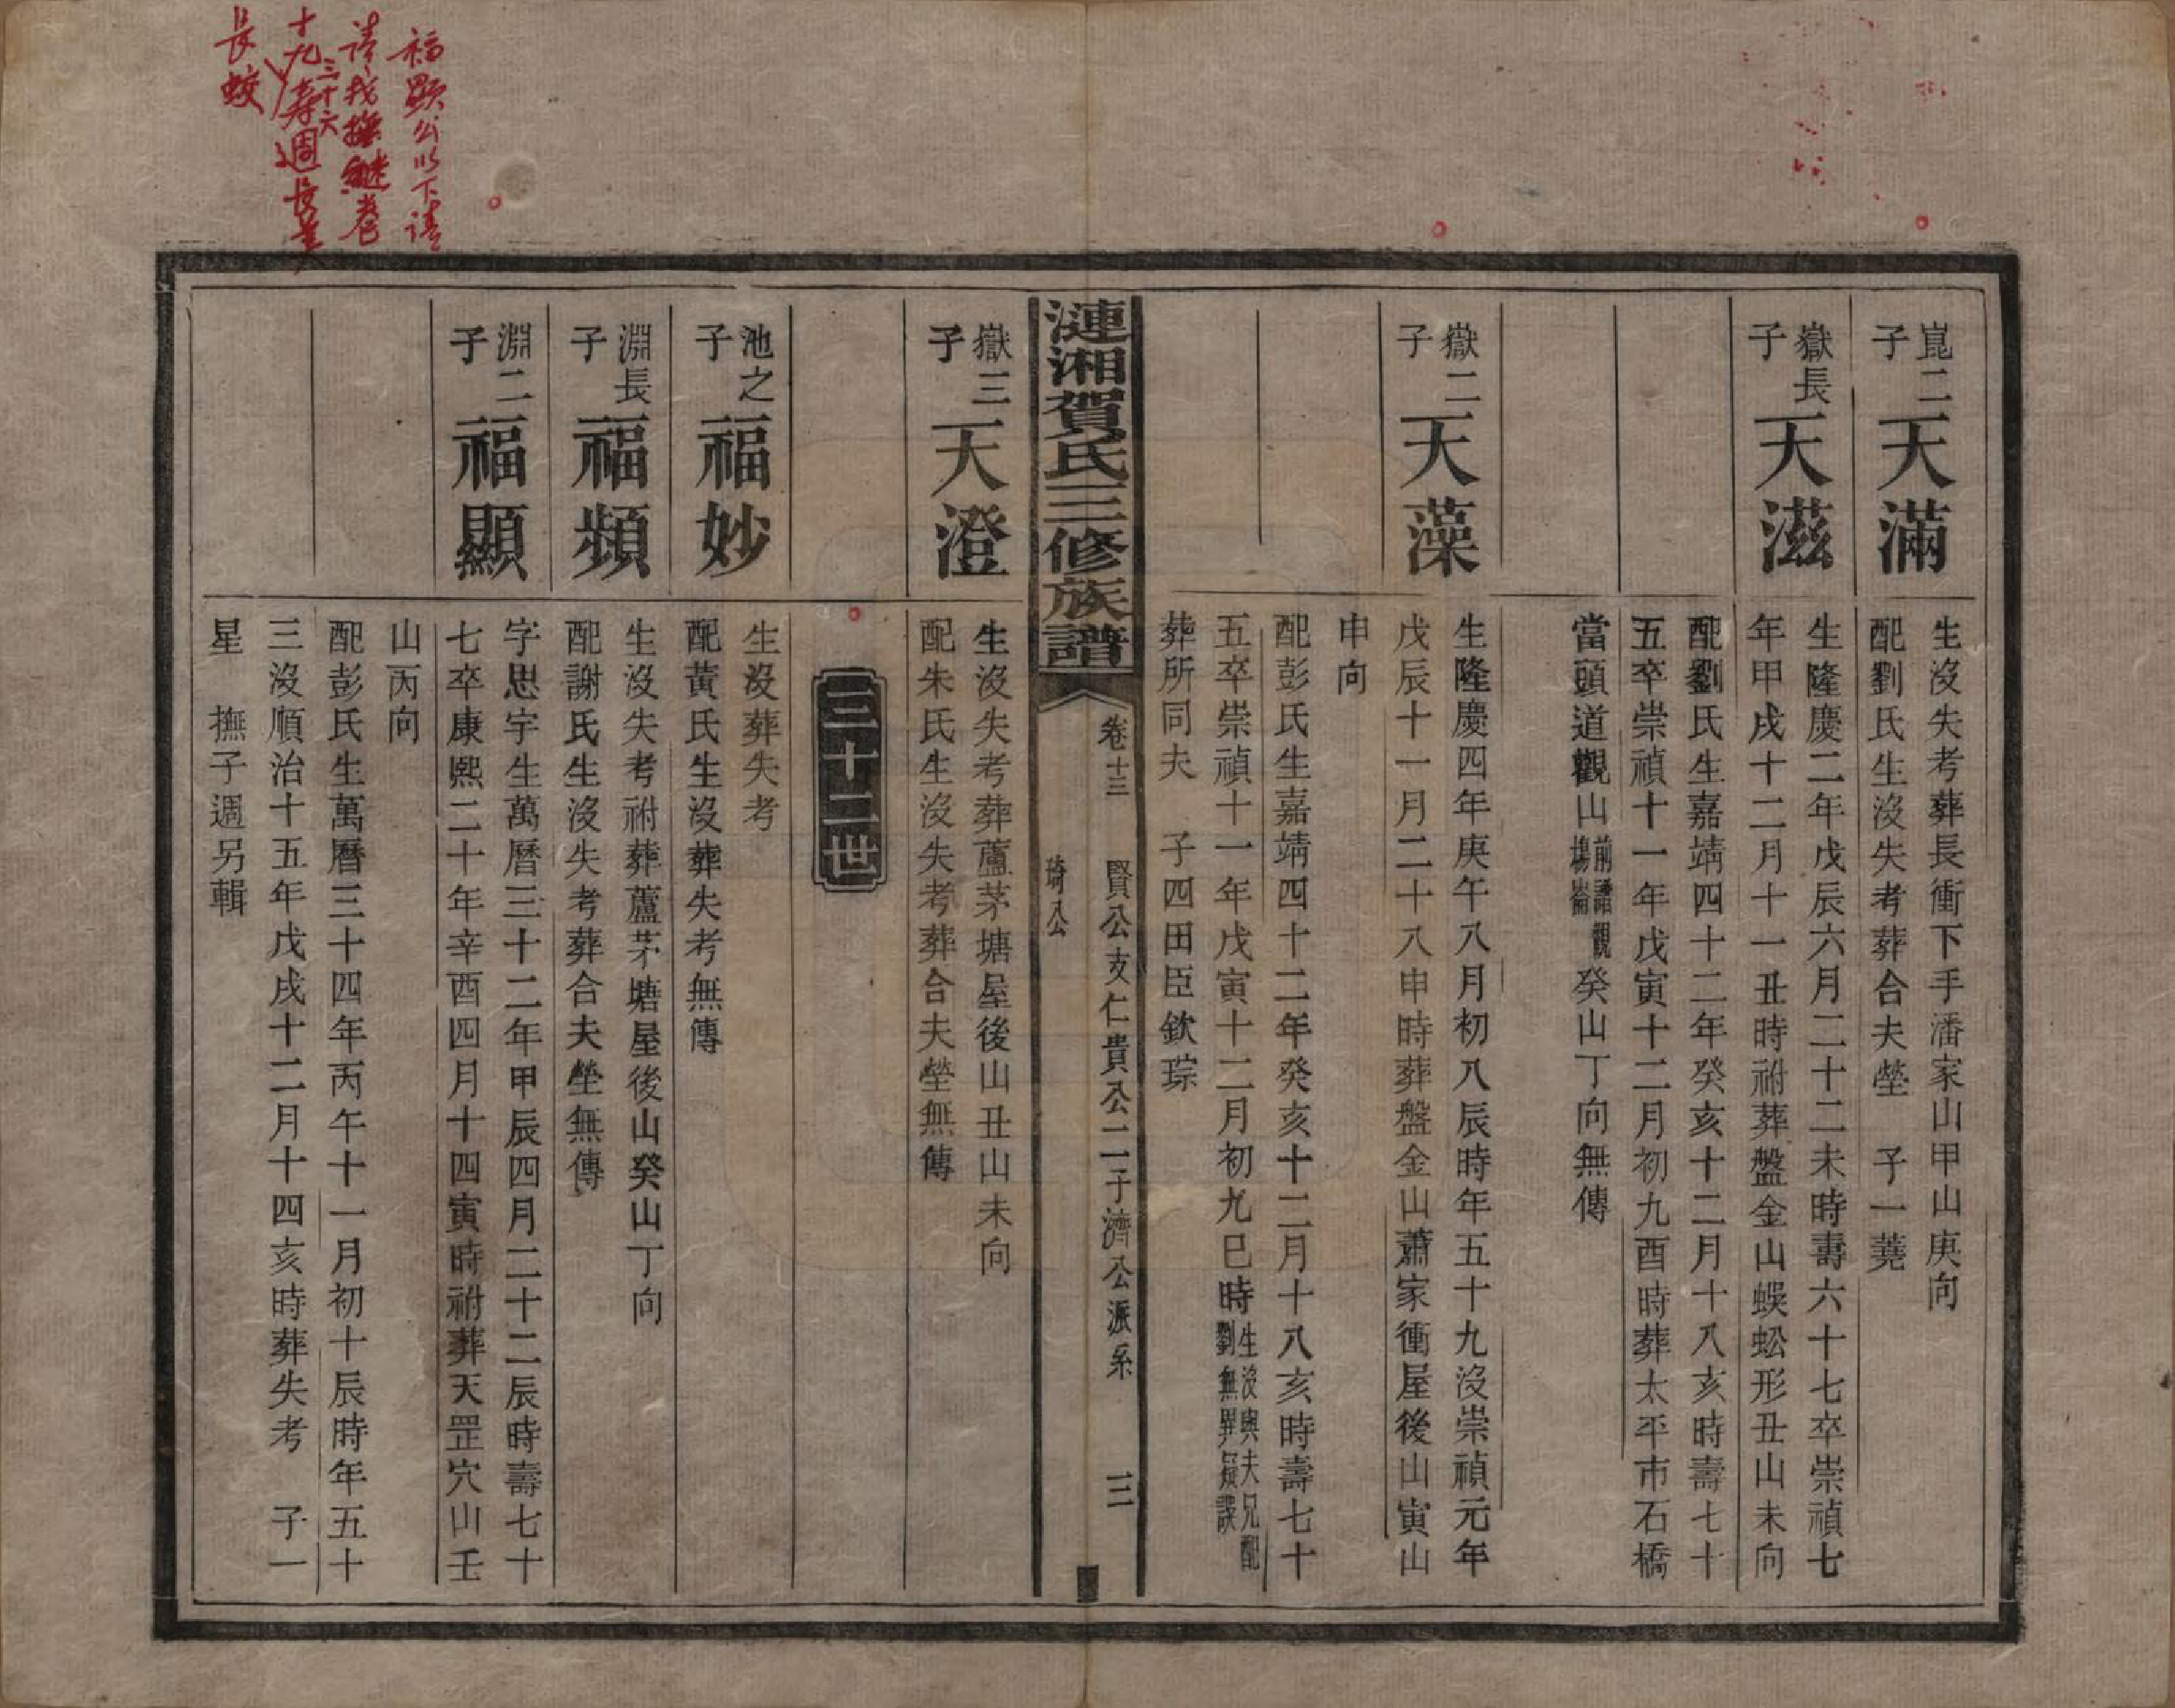 崑二子 天滿
生沒失考葬長衝下手潘家山甲山庚向
配劉氏生沒失考葬合夫塋 子一蕘
嶽長子 天滋
生隆慶二年戊辰六月二十二未時壽六十七卒崇禎七
年甲戌十二月十一丑時祔葬盤金山蜈蚣形丑山未向
配劉氏生嘉靖四十二年癸亥十二月十八亥時壽七十
五卒崇禎十一年戊寅十二月初九酉時葬太平市石橋
當頭道觀山 癸山丁向無傳
嶽二子 天藻
生隆慶四年庚午八月初八辰時年五十九沒崇禎元年
戊辰十一月二十八申時葬盤金山蕭家衝屋後山寅山
申向
配彭氏生嘉靖四十二年癸亥十二月十八亥時壽七十
五卒崇禎十一年戊寅十二月初九巳時生沒與夫兄配劉無異疑誤
葬所同夫 子四田臣欽琮
漣湘賀氏三修族譜
卷十三 賢公支仁貴公二子濟公派系 三
琦公
嶽三子 天澄
生沒失考葬蘆茅塘屋後山丑山未向
配朱氏生沒失考葬合夫塋無傳
三十二世
池之子 福妙
生沒葬失考
配黃氏生沒葬失考無傳
淵長子 福頻
生沒失考祔葬蘆茅塘屋後山癸山丁向
配謝氏生沒失考葬合夫塋無傳
淵二子 福顯
字思宇生萬曆三十二年甲辰四月二十二辰時壽七十
七卒康熙二十年辛酉四月十四寅時祔葬天罡穴山壬
山丙向
配彭氏生萬曆三十四年丙午十一月初十辰時年五十
三沒順治十五年戊戌十二月十四亥時葬失考 子一
星 撫子週另輯
福顯公以下請
請我撫繼卷
三十六
十九壽週長
長蛟